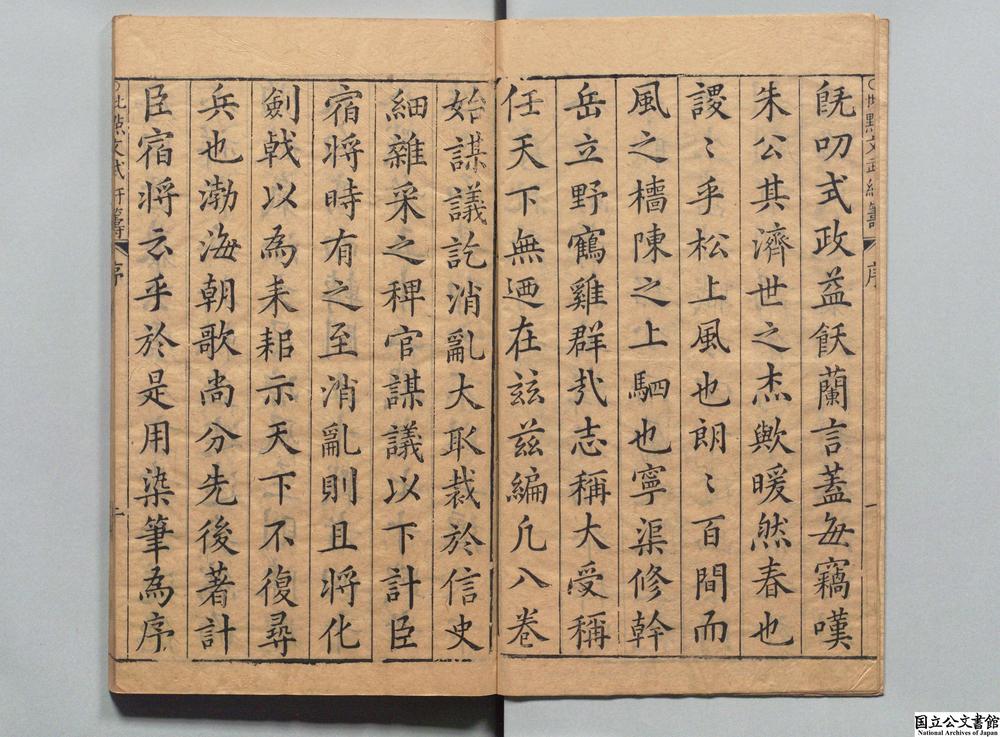 旣叨式政益飫蘭言蓋每竊嘆
朱公其濟世之杰歟暖然春也
謖〻乎松上風也朗〻百間而
風之檣陳之上駟也寧渠修幹
岳立野鶴雞群㢤志稱大受稱
任天下無迺在玆茲編凡八卷
始謀議訖消亂大取裁於信史
細雜采之稗官謀議以下計臣
宿將時有之至消亂則且將化
劍戟以為耒耜示天下不復尋
兵也渤海朝歌尚分先後著計
臣宿將云乎於是用染筆為序
序
一
序
一
国立公文書館
National Archives of Japan